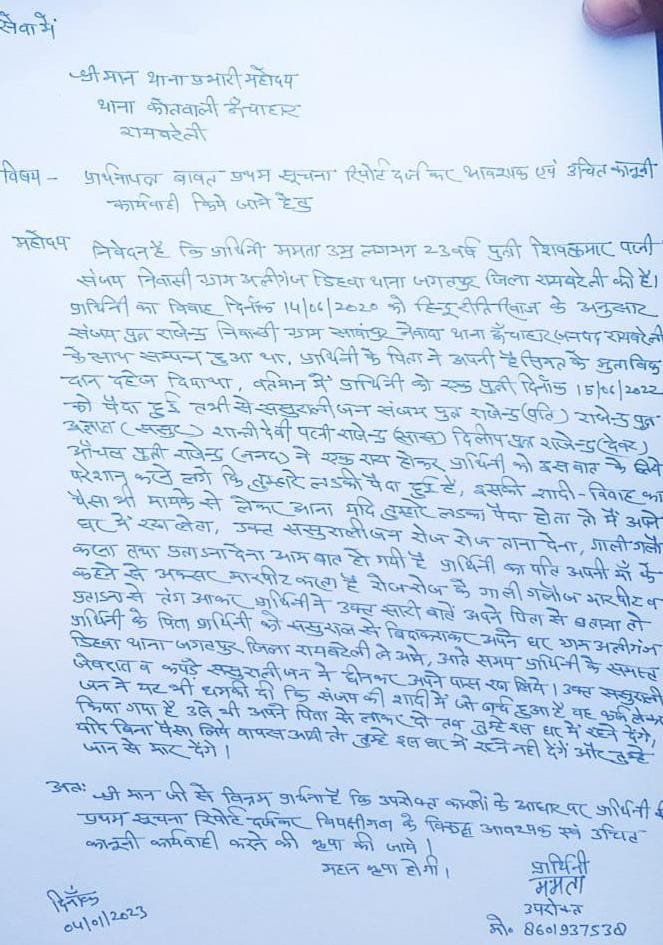 सेवा में
श्री मान थाना प्रभारी महोदय
थाना कोतवाली ऊँचाहार
रायबरेली
विषय - प्रार्थनापत्र बावत प्रथम सूचना रिपोर्ट दर्ज कर आवश्यक एवं उचित कानूनी
कार्यवाही किये जाने हेतु
महोदय निवेदन है कि प्रार्थिनी ममता उम्र लगभग 23 वर्ष पुत्री शिवकुमार पत्नी
संजय निवासी ग्राम अलीगंज डिहवा थाना जगतपुर जिला रायबरेली की है।
प्रार्थिनी का विवाह दिनाँक 14/06/2020 को हिन्दू रीति रिवाज के अनुसार
संजय पुत्र राजेन्द्र निवासी ग्राम सवापुर नेवादा थाना ऊँचाहार जनपद रायबरेली
के साथ सम्पन्न हुआ था, प्रार्थिनी के पिता ने अपनी हैसियत के मुताबिक
दान दहेज दिया था, वर्तमान में प्रार्थिनी को एक पुत्री दिनाँक 15/06/2022
को पैदा हुई तभी से ससुरालीजन संजय पुत्र राजेन्द्र (पति) राजेन्द्र पुत्र
अज्ञात (ससुर) शान्ती देवी पत्नी राजेन्द्र (सास) दिलीप पुत्र राजेन्द्र (देवर)
आँचल पुत्री राजेन्द्र (ननद) ने एक राय होकर प्रार्थिनी को इस बात के लिये
परेशान करने लगे कि तुम्हारे लडकी पैदा हुई है, इसकी शादी-विवाह का
पैसा भी मायके से लेकर आना यदि तुम्हारे लडका पैदा होता तो मैं अपने
घर में रख लेता, उक्त ससुरालीजन रोज रोज ताना देना, गाली गलौ
करना तथा प्रताडना देना आम बात हो गयी है प्रार्थिनी का पति अपनी माँ के
कहने से अक्सर मारपीट करता है रोजरोज के गाली गलौज मारपीट व
प्रताडना से तंग आकर प्रार्थिनी ने उक्त सारी बातें अपने पिता से बताया तो
प्रार्थिनी के पिता प्रार्थिनी को ससुराल से बिदा कराकर अपने घर ग्राम अलीगंज
डिहवा थाना जगतपुर जिला रायबरेली ले आये, आते समय प्रार्थिनी के समस्त
जेवरात व कपडे ससुरालीजन ने छीनकर अपने पास रख लिये। उक्त ससुराली
जन ने यह भी धमकी दी कि संजय की शादी में जो खर्च हुआ है वह कर्ज लेकर
किया गया है उसे भी अपने पिता से लाकर दो तब तुम्हे इस घर में रहने देंगे,
यदि बिना पैसा लिये वापस आयी तो तुम्हे इस घर में रहने नही देंगें और तुम्हे
जान से मार देंगे।
अतः श्री मान जी से विनम्र प्रार्थना है कि उपरोक्त कारणों के आधार पर प्रार्थिनी की
प्रथम सूचना रिपोर्ट दर्जकर विपक्षीगण के विरूद्ध आवश्यक एवं उचित
कानूनी कार्यवाही करने की कृपा की जाये।
महान कृपा होगी।
प्रार्थिनी
ममता
उपरोक्त
मो० 8601937538
दिनाँक
04/01/2023